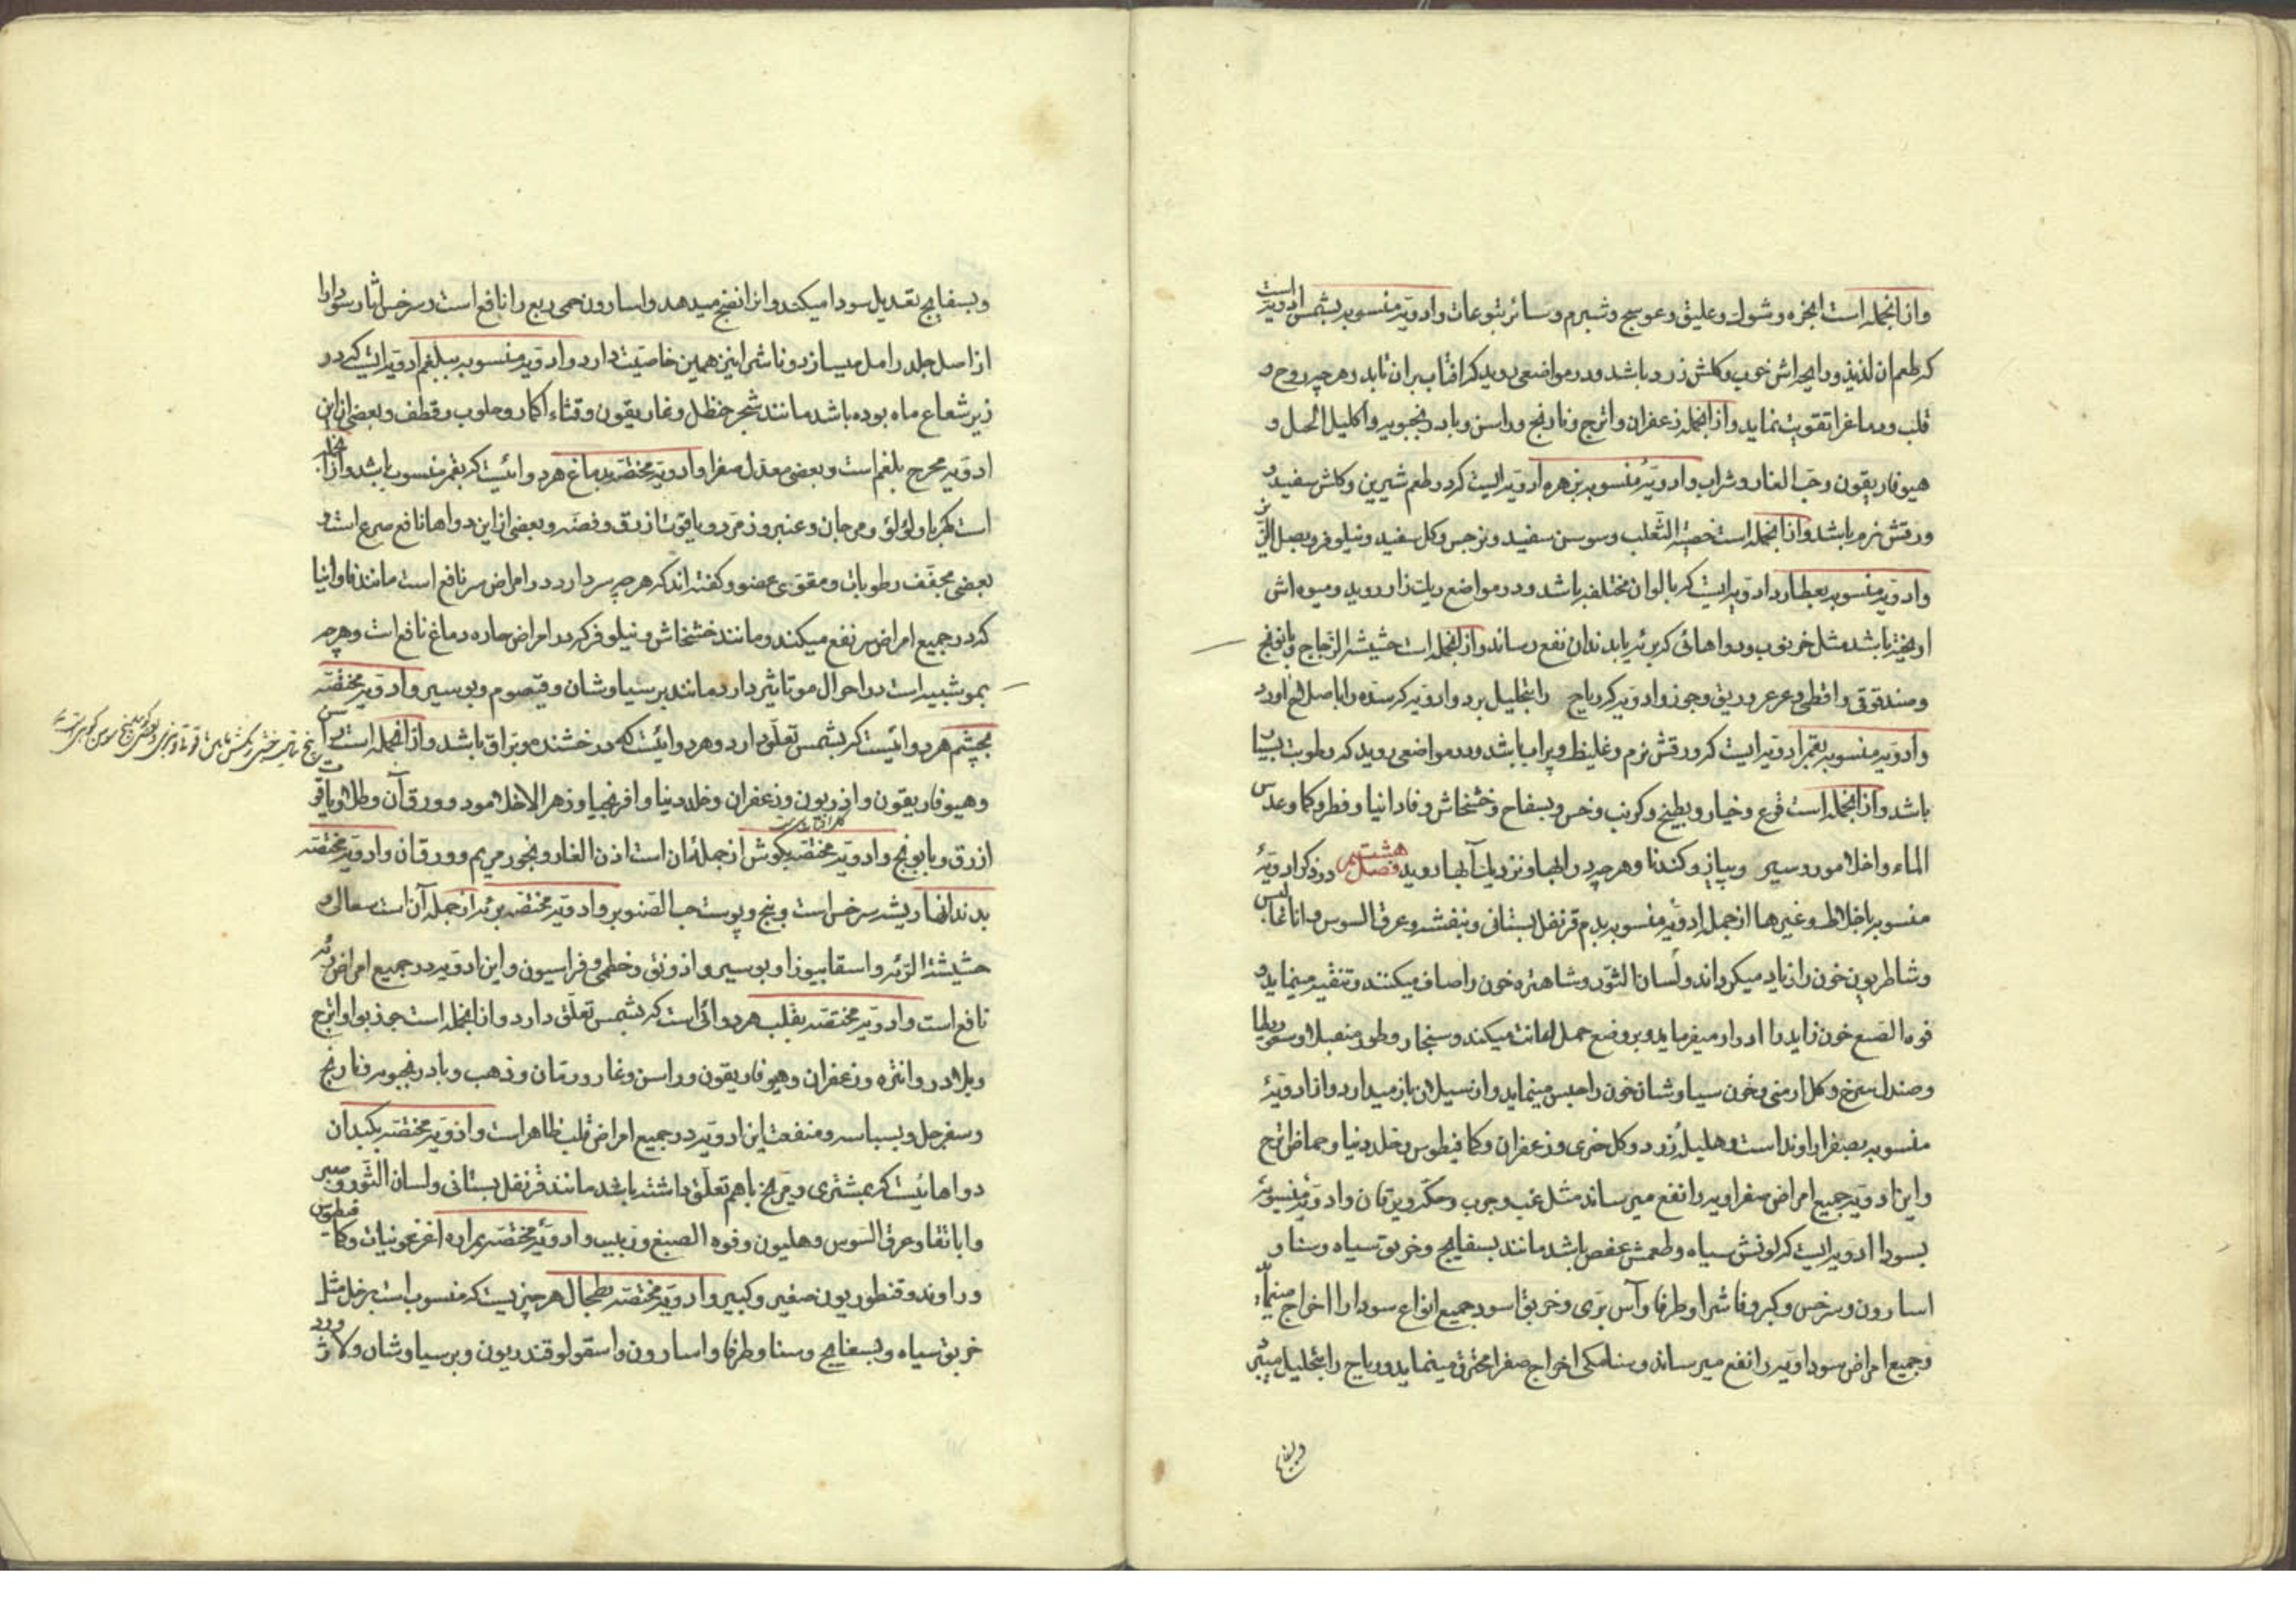 وازانجمله است انجره و شوك و عليق و عوسج و شبرم و سائر يتوعات وادويۀ منسوبه بشمس ادويه است
كه طعم ان لذيذ و رايحه اش خوب و كلش زرد باشد و در مواضعی رويد كه افتاب بران تابد و هرچه روح و
قلب و دماغ را تقويت نمايد وازانجمله زعفران و اترج و نارنج و راسن و بادرنجبويه و اكليل الجبل و
هيوفاريقون و حب الغار و شراب وادويۀ منسوبه بزهره ادويه ايست كه در طعم شيرين و كلش سفيد و
ورقش نرم باشد وازانجمله است خصية الثعلب و سوسن سفيد و نرجس و كل سفيد و نيلوفر و بصل الزيز
وادويۀ منسوبه بعطارد ادويه ايست كه بالوان مختلفه باشد و در مواضع ريك زار رويد و ميوه اش
اويخته باشد مثل خرنوب و دواهائی كه بريه يا بدندان نفع رساند وازانجمله است حشيشة الزجاج و بابونج
و حندقوقی و اقطی و عرعر و ريق و جوز وادويه كه رياح را بتحليل برد وادويه كه سده را باصلاح اورد
وادويۀ منسوبه بقمر ادويه ايست كه ورقش نرم و غليظ و پراب باشد و در مواضعی رويد كه رطوبت بسيار
باشد وازانجمله است قرع و خيار و بطيخ و كرنب و خس و بسفاح و خشخاش و فادانيا و فطر و كما و عدس
الماء و اخلامور و سير و پياز و كندنا و هرچه در ابها و نزديك آبها رويد فصل هشتم در ذكر ادويۀ
منسوبه باخلاط و غيرها ازجمله ادويۀ منسوبه بدم قرنفل بستانی و بنفشه و عرق السوس و اناغاليس
و شاطريون خون را زياد ميكرداند و لسان الثور و شاهتره خون را صاف ميكنند و تنقيه مينمايد و
فوه الصبغ خون زايد را ادرار ميفرمايد و بر وضع حمل اعانت ميكند و سنجار و طورمنصبلا و سفوردلها
و صندل سرخ و كل ارمنی و خون سياوشان خون را حبس مينمايد و از سيلان باز ميدارد و از ادويۀ
منسوبه بصفرا راوند است و هليلۀ زرد و كل خری و زعفران و كمافيطوس و خلدونيا و حماض اترج
و اين ادويه جميع امراض صفراويه را نفع ميرساند مثل غب و جرب و حكه و يرقان وادويۀ منسوبۀ
بسودا ادويه ايست كه لونش سياه و طعمش عفص باشد مانند بسفايج و خربق سياه و سنا و
اسارون و سرخس و كبر و فاشرا و طرفا و آس بری و خربق اسود جميع انواع سودا را اخراج مينمايد
و جميع امراض سوداويه را نفع ميرساند و سنامكی اخراج صفرا محترق مينمايد و رياح را بتحليل ميبرد
و بسفايج
و بسفايج تعديل سودا ميكند و انرا نضج ميدهد و اسارون حمی ربع را نافع است و سرخس اثار سودا را
از اصل جلد زامل ميسازد و فاشرا نيز همين خاصيت دارد وادويۀ منسوبه ببلغم ادويه ايست كه در
زير شعاع ماه بوده باشد مانند شجر حنظل و غاريقون و قثاء الحمار و حلوب و قطف و بعضی از اين
ادويه مخرج بلغم است و بعضی معدل صفرا وادويۀ مختصه بدماغ هر دوائيست كه بقمر منسوب باشد وازانجمله
است كهربا و لؤلؤ و مرجان و عنبر و زمرد و ياقوت ازرق و فضه و بعضی از اين دواها نافع صرع است و
بعضی مجفف رطوبات و مقوی عضو و كفته اند كه هرچه سر دارد در امراض سر نافع است مانند فاوانيا
كه در جميع امراض سر نفع ميكند و مانند خشخاش و نيلوفر كه در امراض حاره دماغ نافع است و هرچه
بمو شبيه است در احوال مو تاثير دارد مانند برسياوشان و قيصوم و بوسير وادويۀ مختصه
بچشم هر دوائيست كه بشمس تعلق دارد و هر دوائيست كه درخشنده و براق باشد وازانجمله است
و هيوفاريقون و اذريون و زعفران و خلدونيا و افرنجيا و زهر الاخلامود و ورق آن و طلا و ياقوت
ازرق و بابونج وادويۀ مختصه بكوش ازجملۀ ان است اذن الفار و بخور مريم و ورق ان وادويۀ مختصه
بدندانها ريشه سرخس است و بنج و پوست حب الصنوبر وادويۀ مختصه بريه ازجملۀ آن است سعالی و
حشيشة الريه و اسقابيوزا و بوسير و اذونق و خطمی و فراسيون و اين ادويه در جميع امراض ريه
نافع است وادويۀ مختصه بقلب هر دوائی است كه بشمس تعلق دارد وازانجمله است جوذبوا و اترج
و بلادر و انتره و زعفران و هيوفاريقون و راسن و غار و رمان و ذهب و بادرنجبويه و نارنج
و سفرجل و بسباسه و منفعت اين ادويه در جميع امراض قلب ظاهر است وادويۀ مختصه بكبد ان
دواهائيست كه بمشتری و مريخ باهم تعلق داشته باشد مانند قرنفل بستانی و لسان الثور و صبر
و اباتقا و عرق السوس و هليون و فوه الصبغ و زبيب وادويۀ مختصه بمراره اغزعونيات و كمافيطوس
و راوند و قنطوريون صغير و كبير وادويۀ مختصه بطحال هر چيزيست كه منسوب است بزحل مثل
خربق سياه و بسفايج و سنا و طرفا و اسارون و اسقولوقندريون و برسياوشان و لاژورد